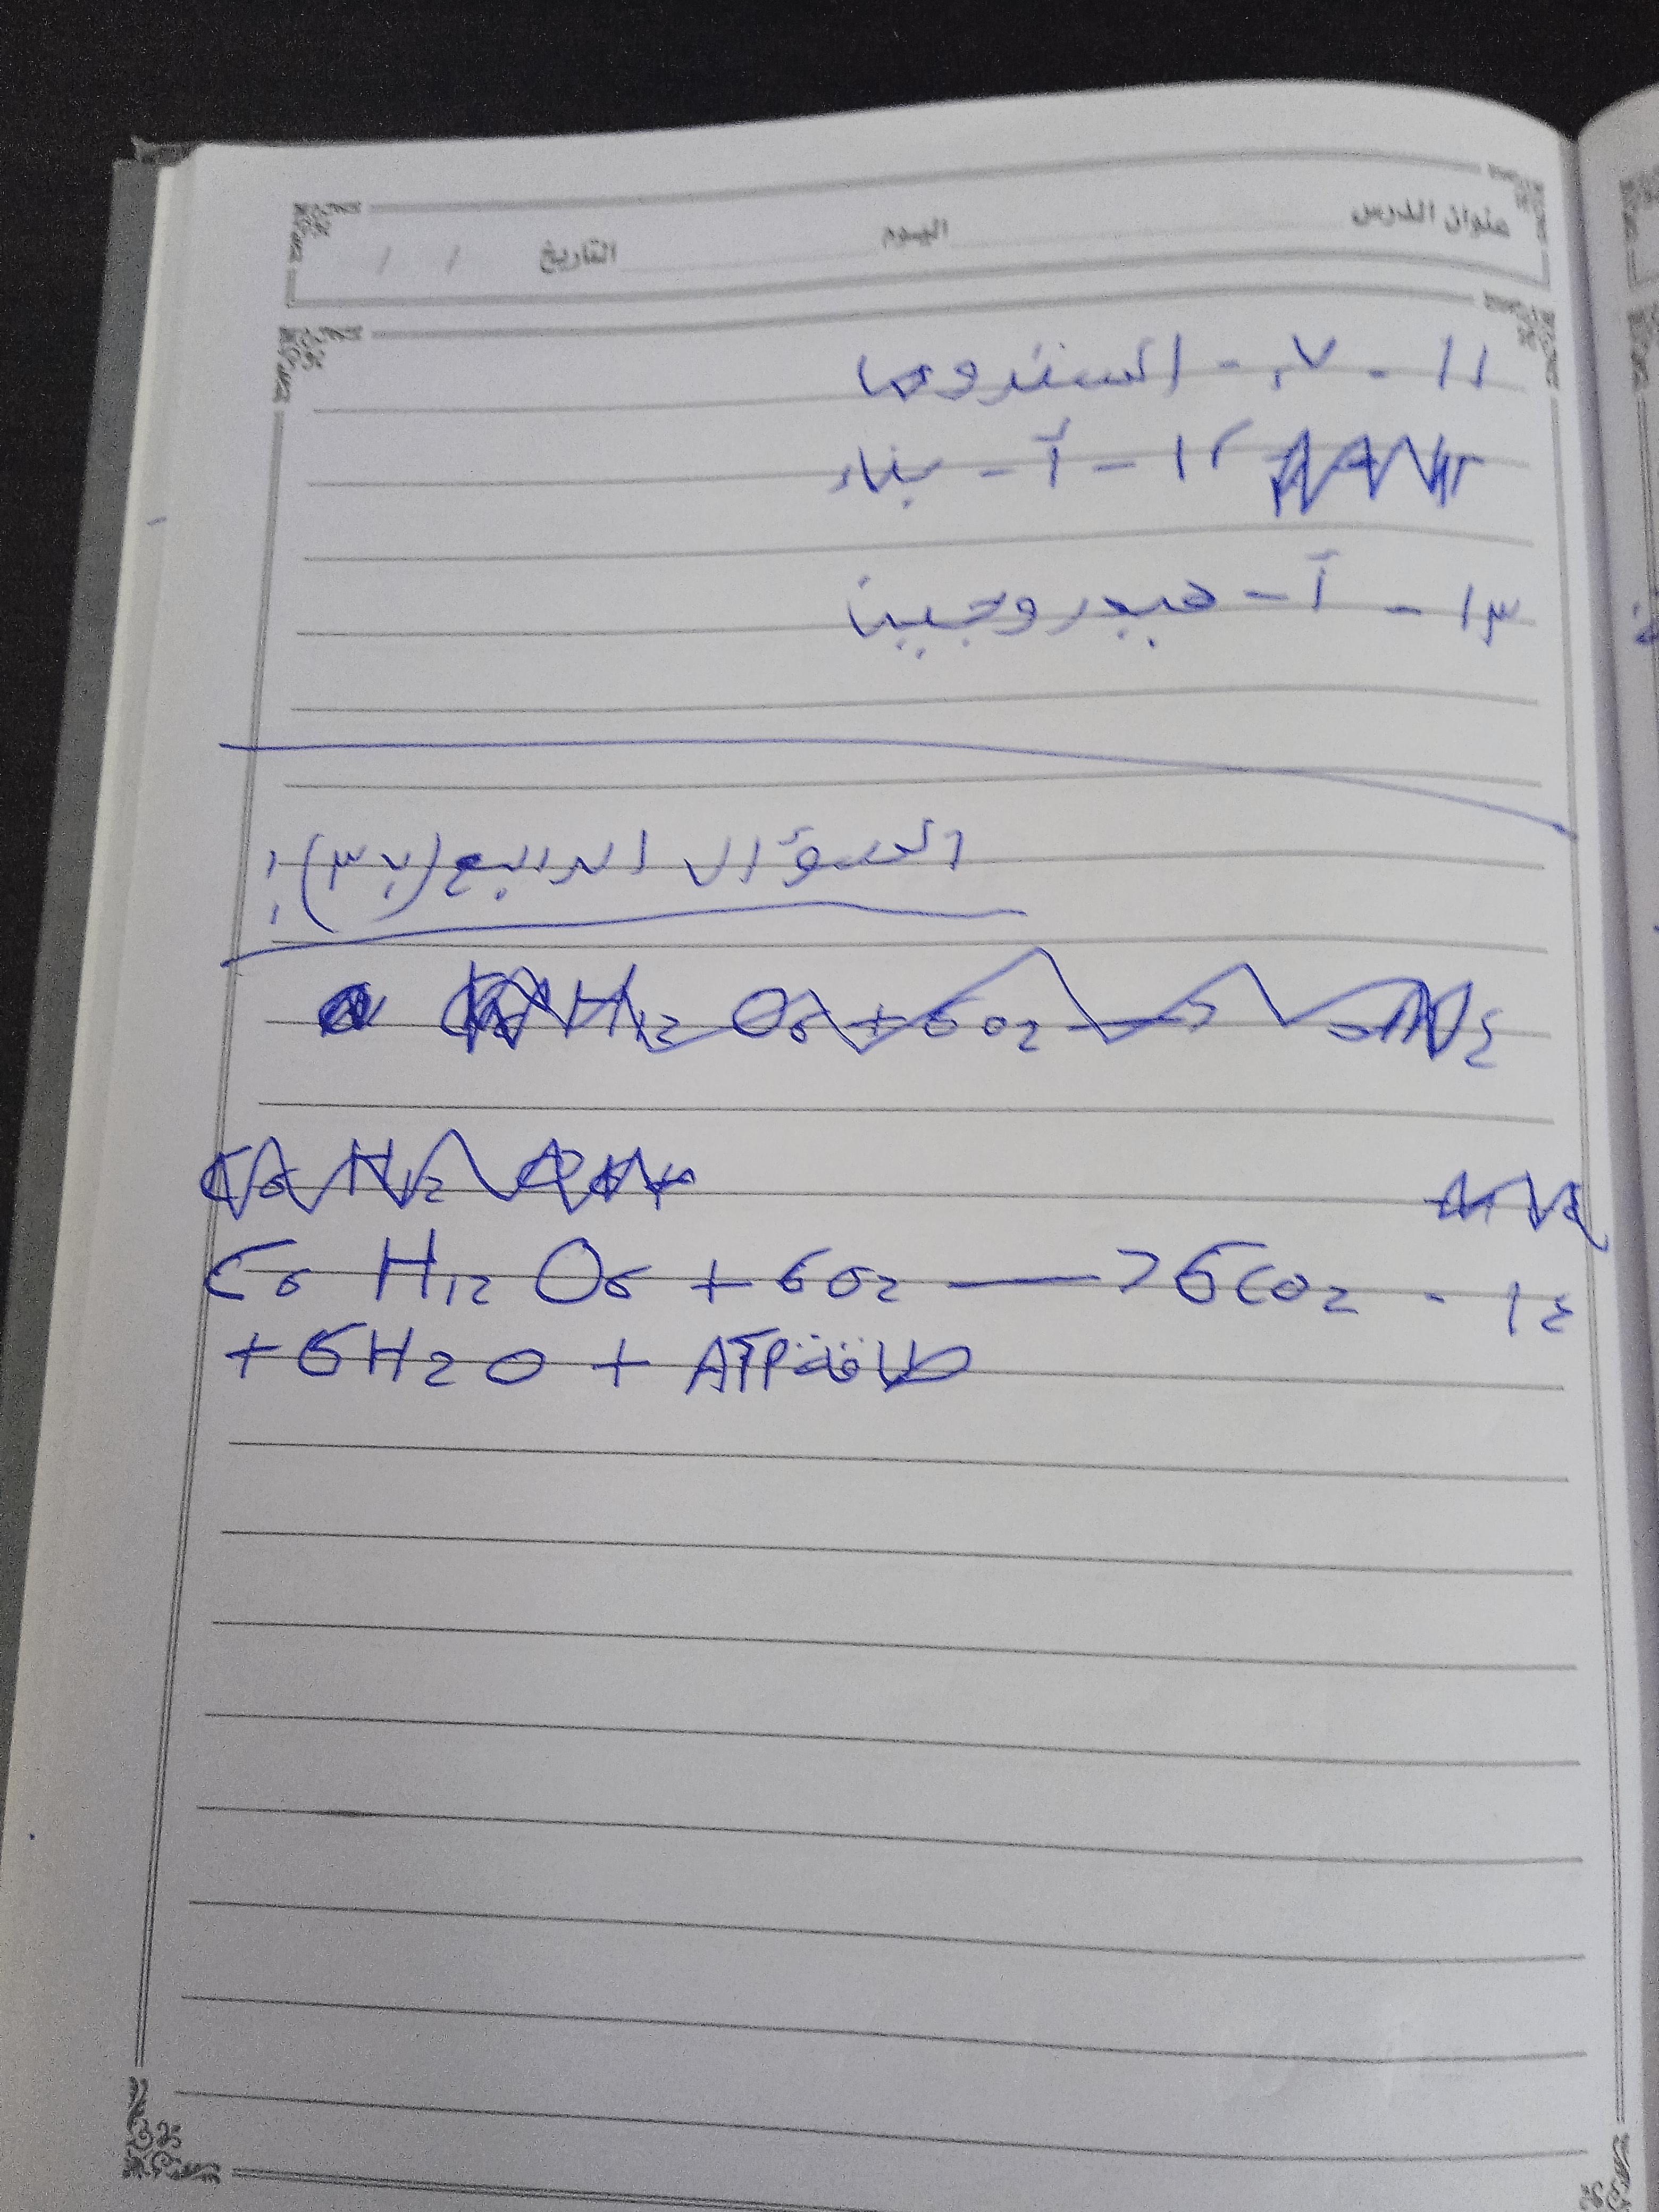 عنوان الدرس اليوم التاريخ / /
١١ - ب - السنتروما
١٢ - أ - بناء
١٣ - أ - هيدروجينا
السؤال الرابع (ب٣):
C6 H12 O6 + 6O2 → 6CO2 - ١٤
+ 6H2O + ATP طاقة